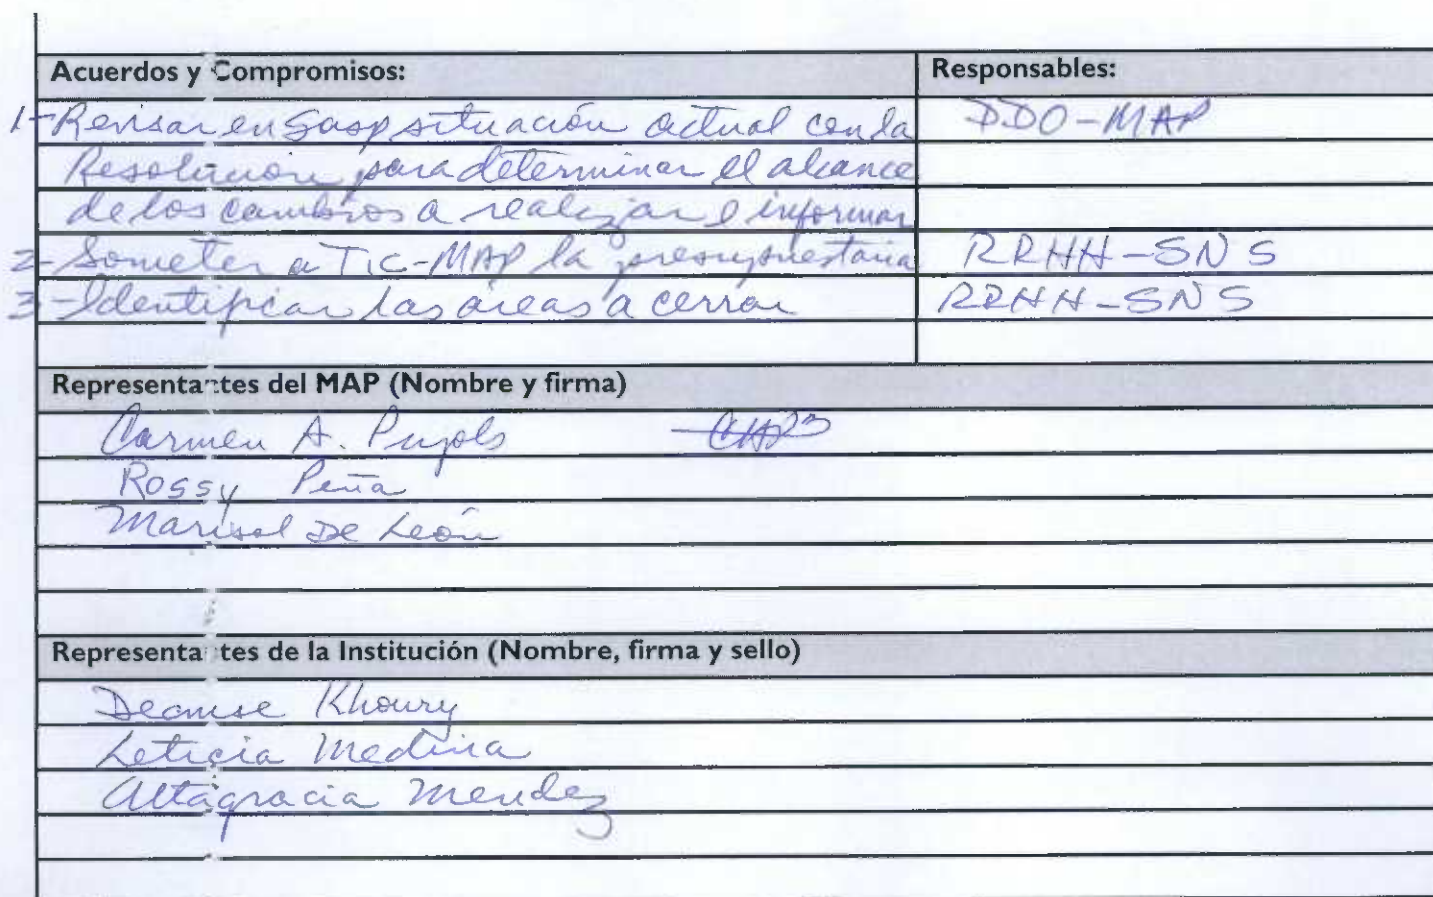 Acuerdos y Compromisos: Responsables:
1-Revisar en Sasp situación actual con la DDO-MAP
Resolución para determinar el alcance
de los cambios a realizar e informar
2-Someter a TIC-MAP la presupuestaria RRHH-SNS
3-Identificar las áreas a cerrar RRHH-SNS
Representantes del MAP (Nombre y firma)
Carmen A. Pujols
Rossy Peña
Marisol De León
Representantes de la Institución (Nombre, firma y sello)
Deanise Khoury
Leticia Medina
Altagracia Mendez